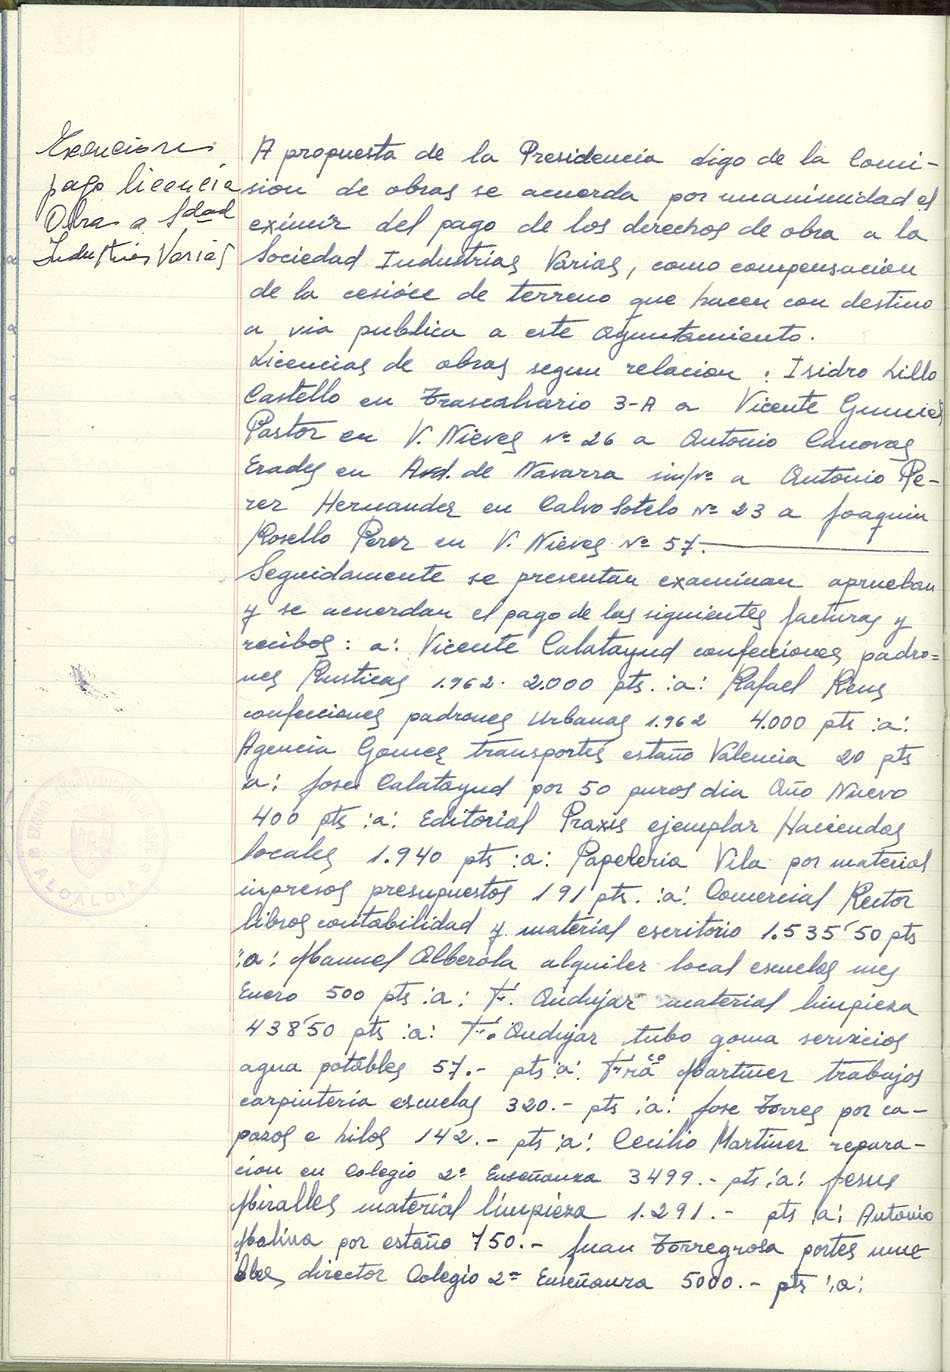 Exencion
pago licencia
Obras a Sdad
Industrias Varias
A propuesta de la Presidencia digo de la Comi-
sion de obras se acuerda por unanimidad el
eximir del pago de los derechos de obra a la
Sociedad Industrias Varias, como compensacion
de la cesión de terreno que hacen con destino
a via publica a este Ayuntamiento.
Licencias de obras segun relacion : Isidro Lillo
Castello en Trascalvario 3-A a Vicente
Pastor en V. Nieves nº 26 a Antonio Canovas
Erades en Avd. de Navarra sin/nº a Antonio Pe-
rez Hernandez en Calvo Sotelo nº 23 a Joaquin
Rosello Perez en V. Nieves nº 57.
Seguidamente se presentan examinan aprueban
y se acuerdan el pago de las siguientes facturas y
recibos : a: Vicente Calatayud confecciones padro=
nes Rusticas 1.962. 2.000 pts. :a: Rafael Reus
confecciones padrones Urbanas 1.962 4.000 pts :a:
Agencia Gomez transportes estaño Valencia 20 pts
a: Jose Calatayud por 50 puros dia Año Nuevo
400 pts :a: Editorial Praxis ejemplar Haciendas
locales 1.940 pts :a: Papeleria Vila por material
impresos presupuestos 191 pts. :a: Comercial Rector
libros contabilidad y material escritorio 1.535'50 pts
:a: Manuel Alberola alquiler local escuelas mes
Enero 500 pts :a: F. Andujar material limpieza
438'50 pts :a: F. Andujar tubo goma servicios
agua potables 57.- pts :a: Martinez trabajos
carpinteria escuelas 320.- pts :a: Jose Torres por ca-
pazos e hilos 142.- pts :a: Cecilio Martinez repara-
cion en Colegio 2ª Enseñanza 3499.- pts :a: Jesus
Miralles material limpieza 1.291.- pts :a: Antonio
Molina por estaño 750.- Juan Torregrosa portes mue
bles director Colegio 2ª Enseñanza 5000.- pts :a:
ALCALDIA